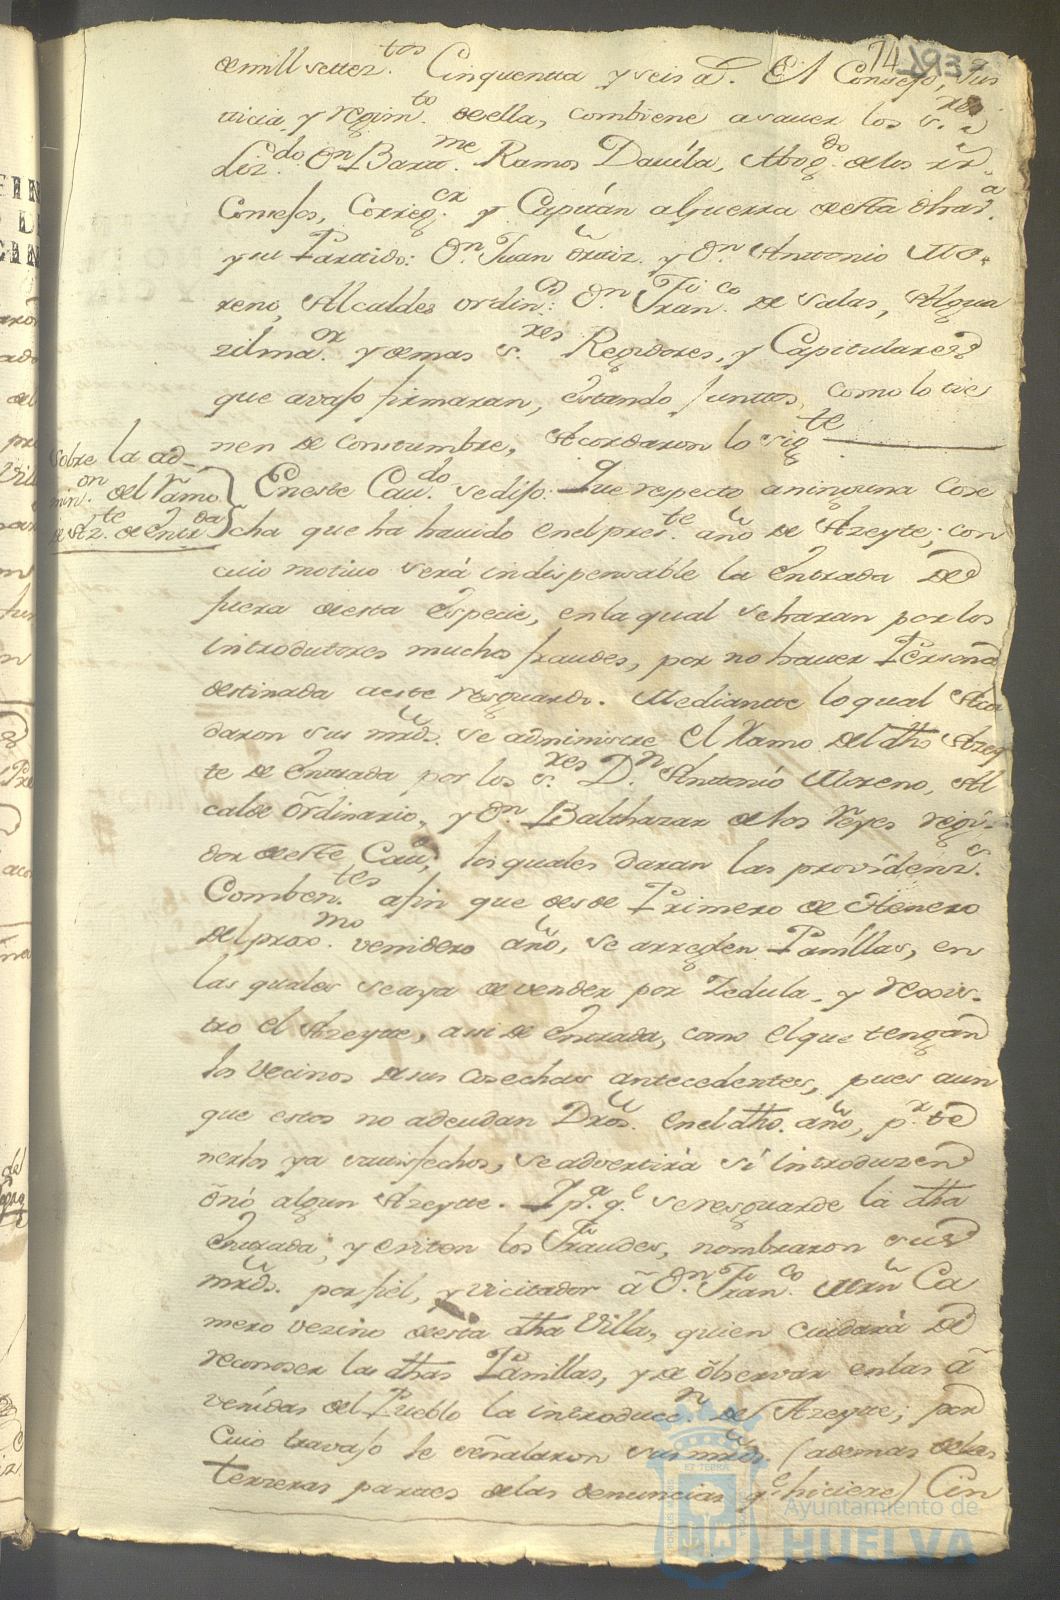 74
de mill settez.tos Cinquenta y seis a.s El Consejo, Jus
ticia y regim.to de ella, combiene a sauer los s.res
Liz.do D.n Bar.me Ramos Dauila, Abog.do de los R.s
Consejos, Correg.or y Capitán a guerra de esta dha v.a
y su Partido: D.n Juan Ortiz y D.n Antonio Mo-
reno, Alcaldes ordin.os: D.n Fran.co de Salas, Algua
zil ma.or y demas s.res Regidores, y Capitulares
que avajo firmaran, estando juntos, como lo tie
nen de constumbre, Acordaron lo sig.te
Sobre la ad-
min.on del Ramo
de Az.te de entr.da
En este Cau.do se dijo: Que respecto a ninguna Cose
cha que ha hauido en el pres.te año de Azeyte; con
cuio motiuo será indispensable la entrada de
fuera de esta especie, en la qual se haran por los
introdutores muchos fraudes, por no hauer Persona
destinada a este resguardo. Mediante lo qual Acor
daron sus mrds. se administre el Ramo del dho Azey
te de entrada por los s.res D.n Antonio Moreno, Al
calde ordinario, y D.n Balthazar de los Reyes regi-
dor de este Cau.do, los quales daran las prouidenz.s
Comben.tes a fin que desde Primero de Henero
del prox.mo venidero año, se arreglen Panillas, en
las quales se aya de vender por Zedula, y rexis-
tro el Azeyte, asi de entrada, como el que tengan
los vecinos de sus cosechas antecedentes, pues aun
que estos no adeudan Dros. en el dho. año, p.r te
nerlos ya satisfechos, se advertirá si introduzen
ó nó algun Azeyte. I p.a q.e se resguarde la dha
entrada, y eviten los fraudes, nombraron sus
mrds. por fiel, y vicitador á D.n Fran.co Mrn Ca
mero vezino de esta dha Villa, quien cuidará de
reconoser las dhas Panillas, y de observar en las a
venidas del Pueblo la introducc.n de Azeyte; por
cuio travajo le señalaron sus mrds. (ademas de las
terzeras partes de las denuncias q.e hiciere) Cin
Ayuntamiento de
HUELVA